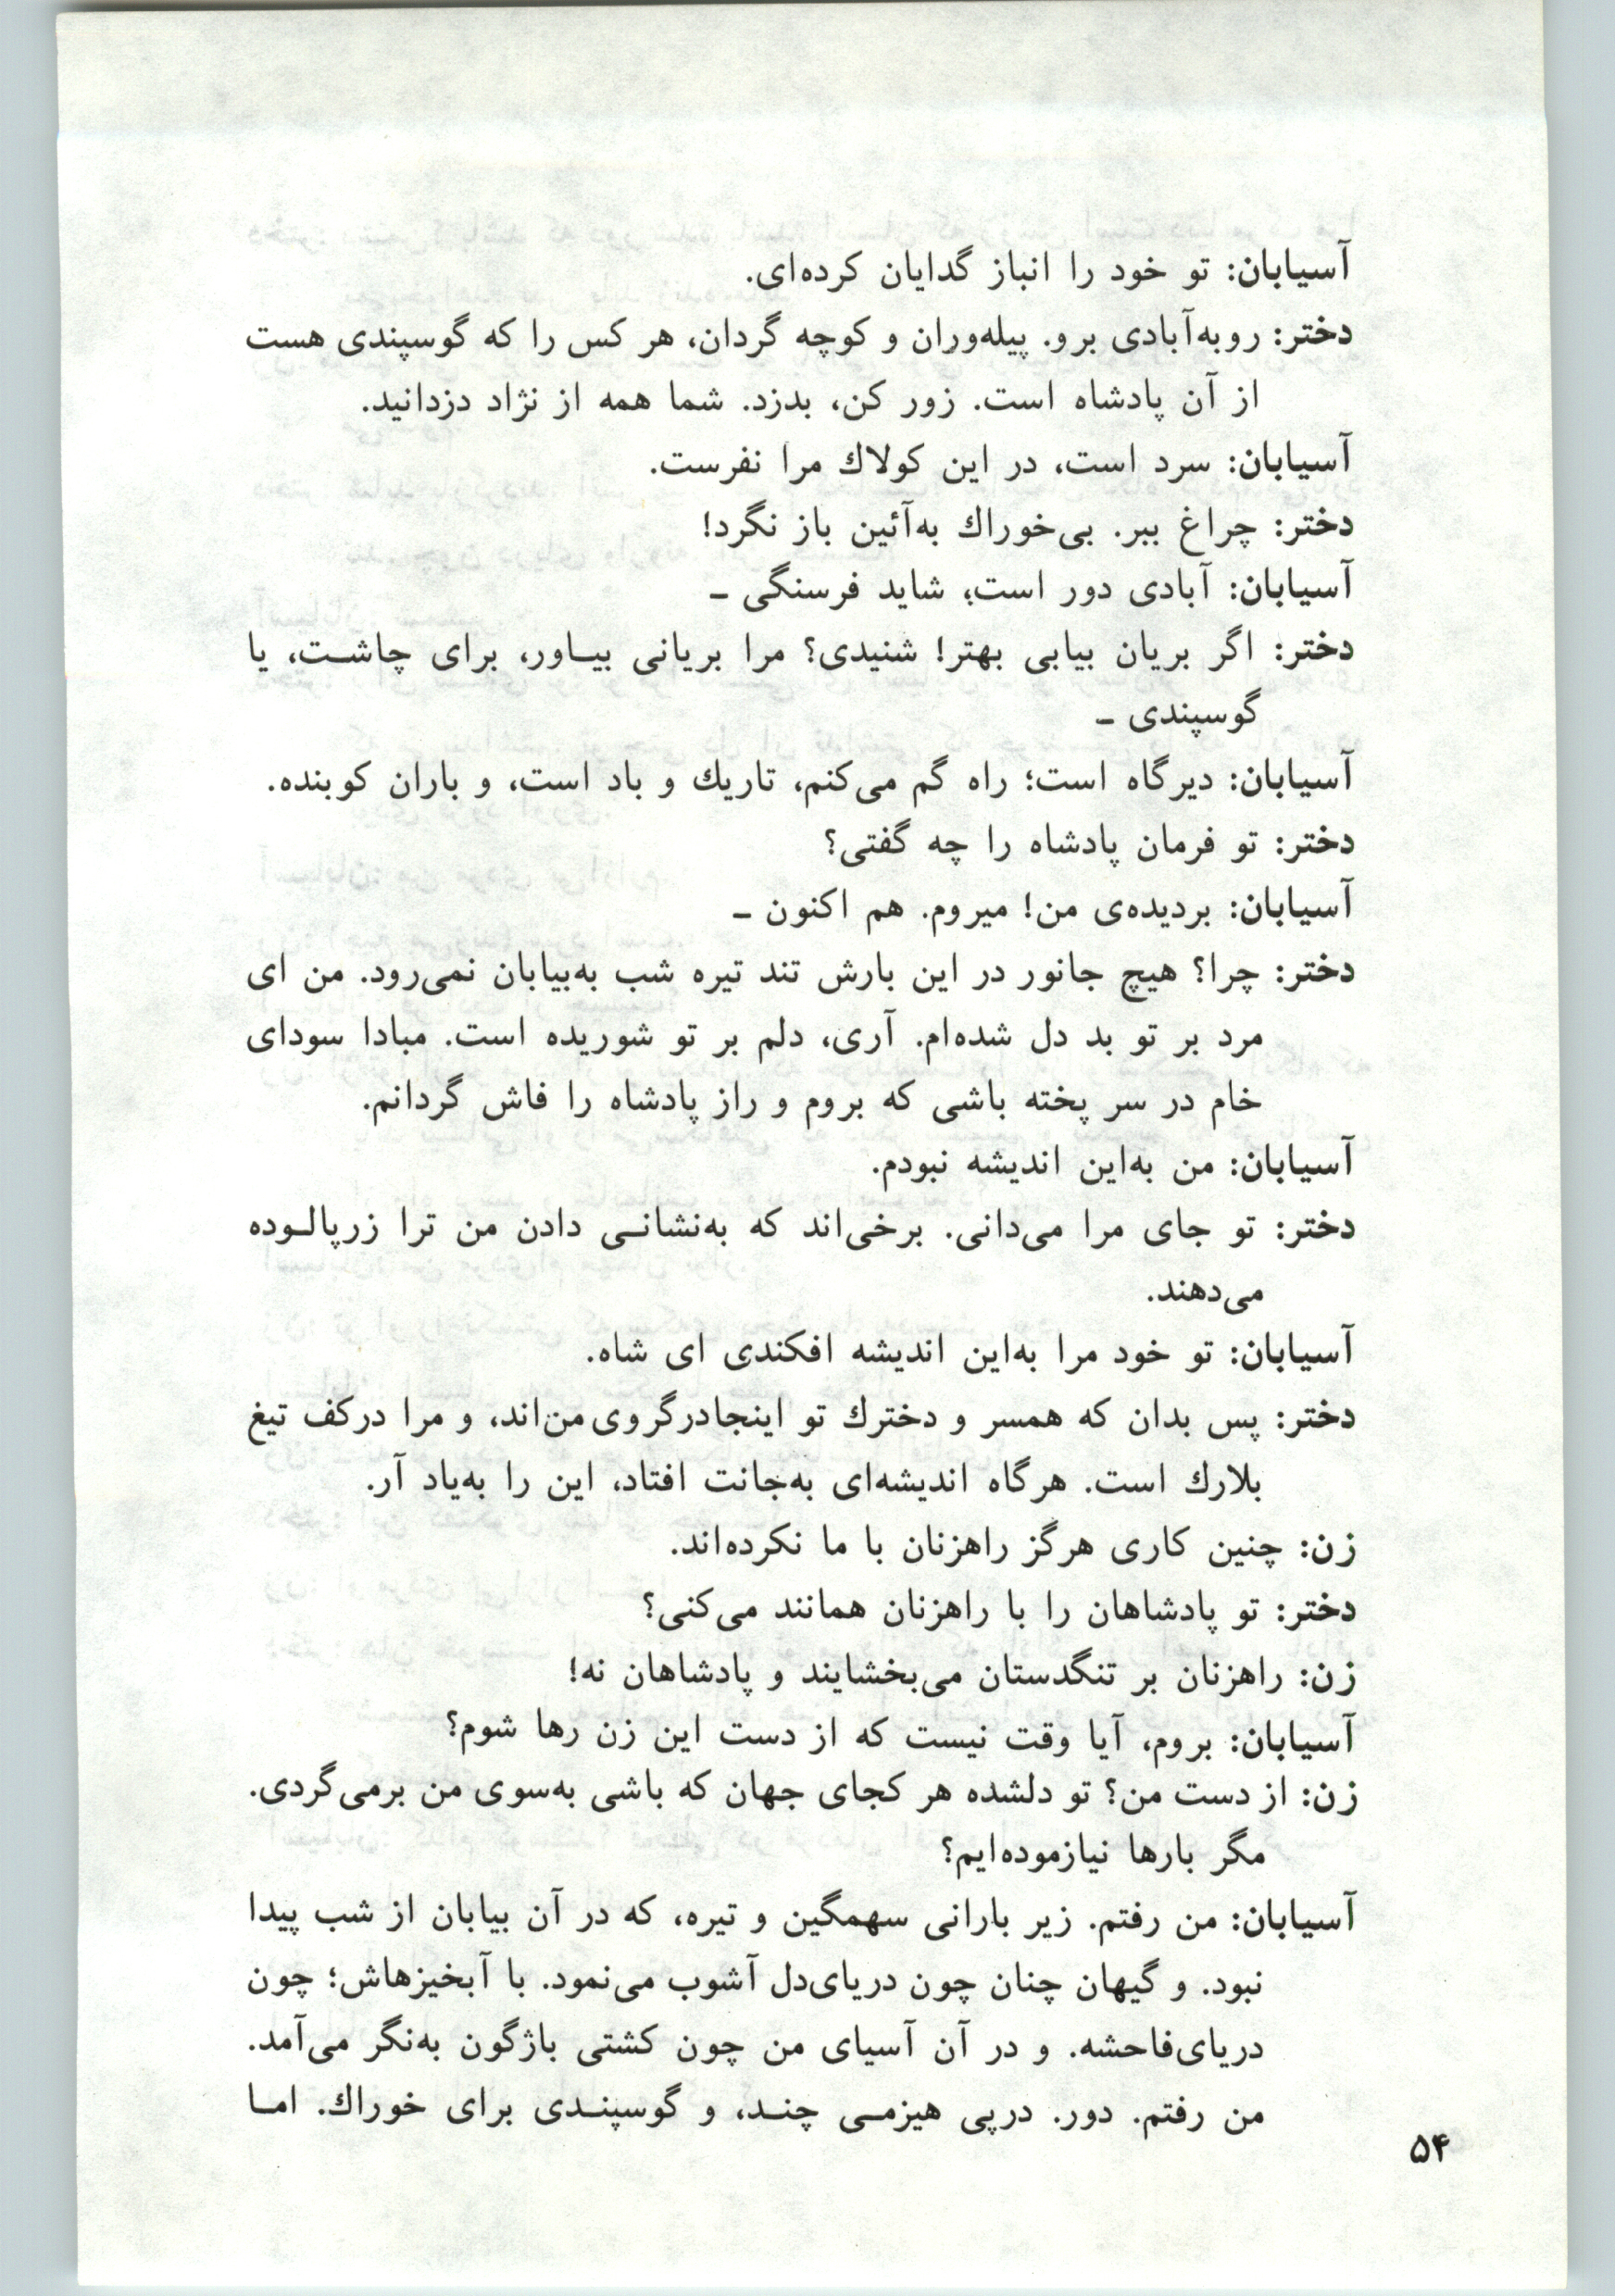 آسیابان: تو خود را انباز گدایان کرده‌ای.
دختر: روبه‌آبادی برو. پیله‌وران و کوچه گردان، هر کس را که گوسپندی هست
از آن پادشاه است. زور کن، بدزد. شما همه از نژاد دزدانید.
آسیابان: سرد است، در این کولاك مرا نفرست.
دختر: چراغ ببر. بی‌خوراك به‌آئین باز نگرد!
آسیابان: آبادی دور است؛ شاید فرسنگی ـ
دختر: اگر بریان بیابی بهتر! شنیدی؟ مرا بریانی بیـاور، برای چاشـت، یا
گوسپندی ـ
آسیابان: دیرگاه است؛ راه گم می‌کنم، تاریك و باد است، و باران کوبنده.
دختر: تو فرمان پادشاه را چه گفتی؟
آسیابان: بردیده‌ی من! میروم. هم اکنون ـ
دختر: چرا؟ هیچ جانور در این بارش تند تیره شب به‌بیابان نمی‌رود. من ای
مرد بر تو بد دل شده‌ام. آری، دلم بر تو شوریده است. مبادا سودای
خام در سر پخته باشی که بروم و راز پادشاه را فاش گردانم.
آسیابان: من به‌این اندیشه نبودم.
دختر: تو جای مرا می‌دانی. برخی‌اند که به‌نشانـی دادن من ترا زرپالـوده
می‌دهند.
آسیابان: تو خود مرا به‌این اندیشه افکندی ای شاه.
دختر: پس بدان که همسر و دخترك تو اینجادرگروی‌من‌اند، و مرا درکف تیغ
بلارك است. هرگاه اندیشه‌ای به‌جانت افتاد، این را به‌یاد آر.
زن: چنین کاری هرگز راهزنان با ما نکرده‌اند.
دختر: تو پادشاهان را با راهزنان همانند می‌کنی؟
زن: راهزنان بر تنگدستان می‌بخشایند و پادشاهان نه!
آسیابان: بروم، آیا وقت نیست که از دست این زن رها شوم؟
زن: از دست من؟ تو دلشده هر کجای جهان که باشی به‌سوی من برمی‌گردی.
مگر بارها نیازموده‌ایم؟
آسیابان: من رفتم. زیر بارانی سهمگین و تیره، که در آن بیابان از شب پیدا
نبود. و گیهان چنان چون دریای‌دل آشوب می‌نمود. با آبخیزهاش؛ چون
دریای‌فاحشه. و در آن آسیای من چون کشتی باژگون به‌نگر می‌آمد.
من رفتم. دور. درپی هیزمـی چنـد، و گوسپنـدی برای خوراك. امـا
۵۴